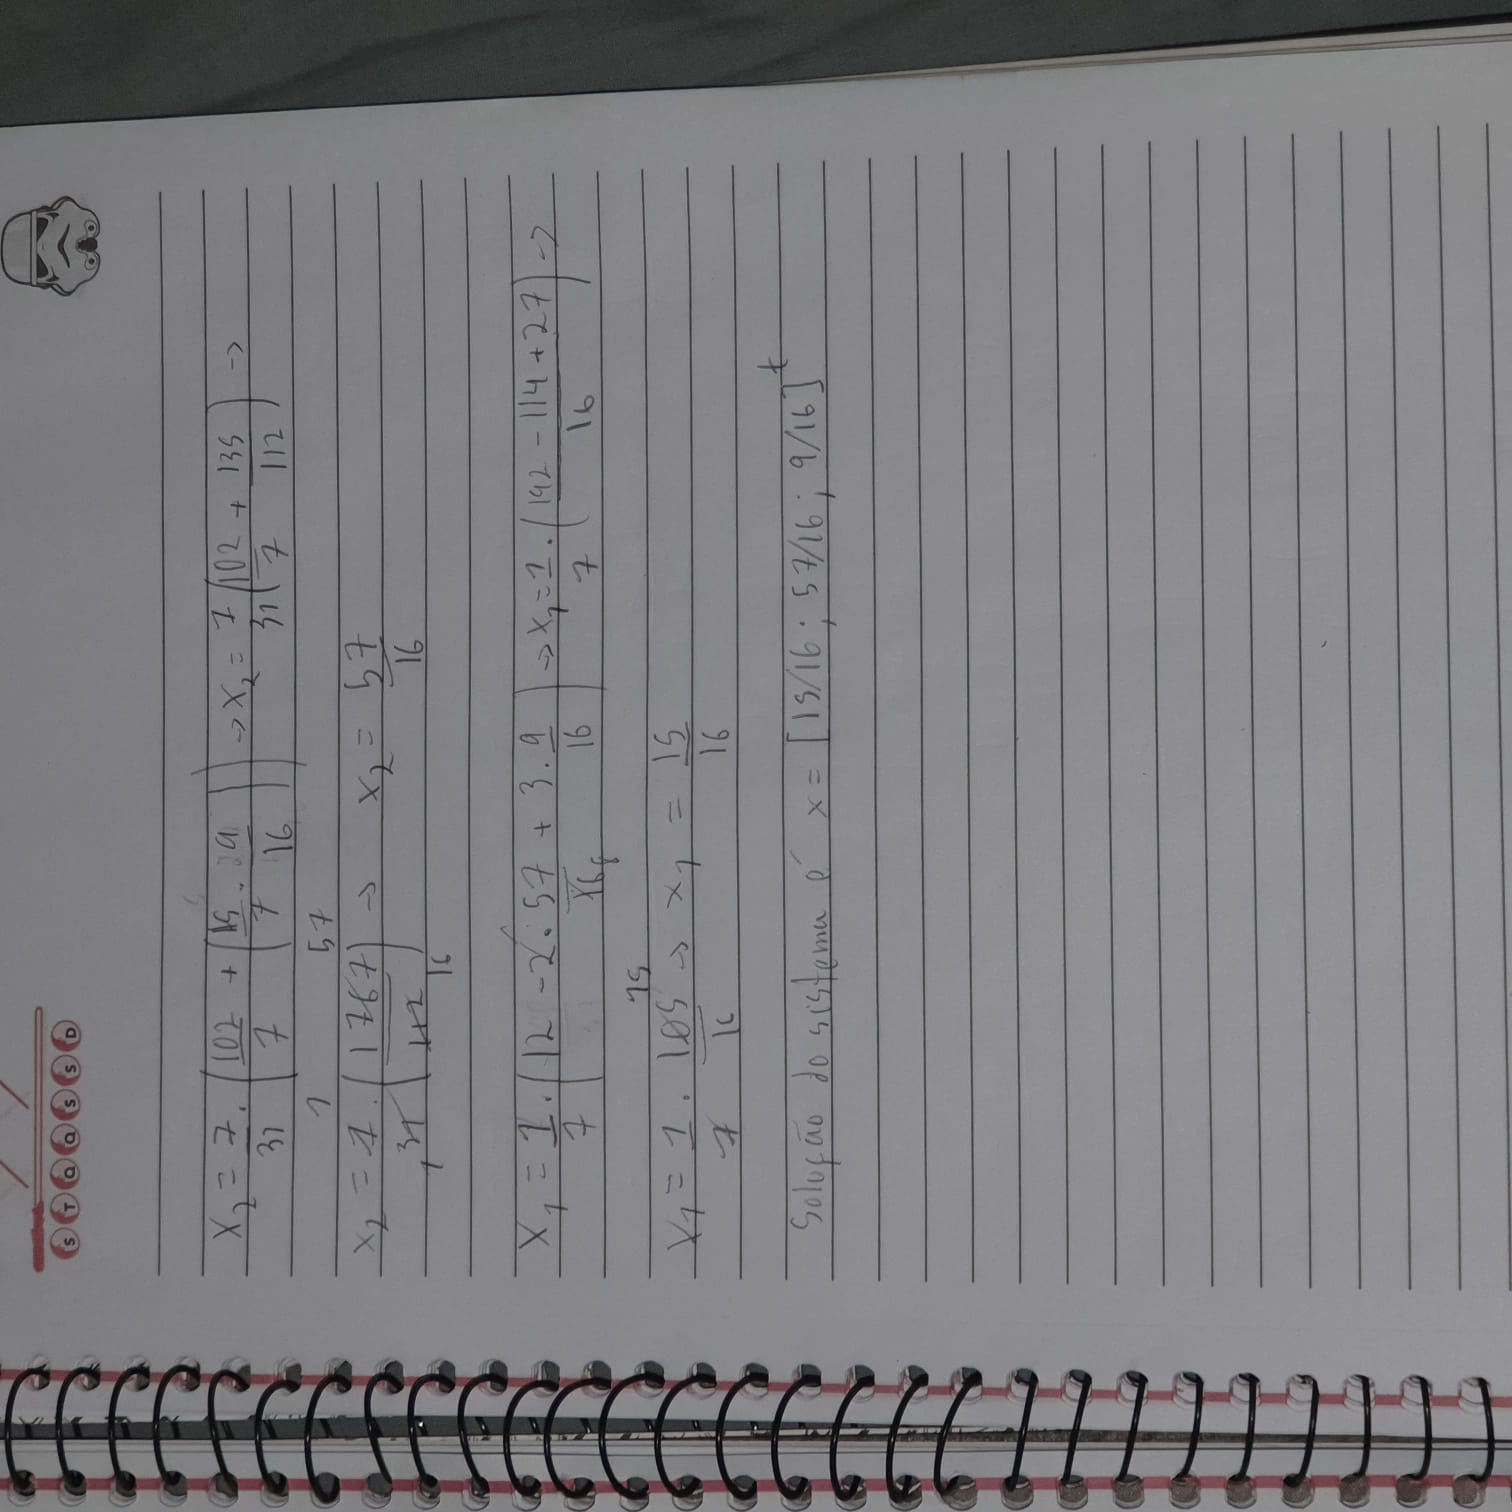 S T Q Q S S D
X₂ = 7/31 · (102/7 + (15/7 · 9/16)) → X₂ = 7/31 (102/7 + 135/112) →
x₂ = 7/31 · (1767/112) → x₂ = 57/16
1 57
1 16
X₁ = 1/7 · (12 - 2 · 57/16 + 3 · 9/16) → x₁ = 1/7 · (192 - 114 + 27)/16 →
8
15
X₁ = 1/7 · 105/16 → x₁ = 15/16
Solução do sistema é x = [15/16 ; 57/16 ; 9/16]ᵗ